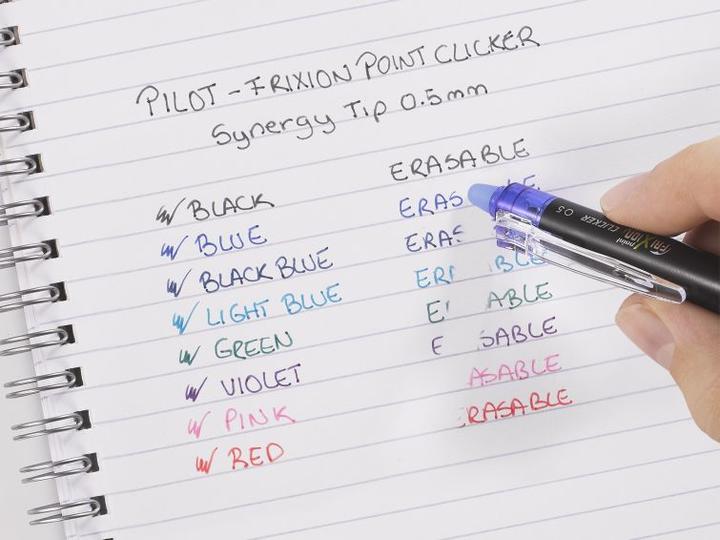 PILOT - FRIXION POINT CLICKER
Synergy Tip 0.5mm
ERASABLE
BLACK
ERAS
BLUE
ERAS
BLACK BLUE
ER BLE
LIGHT BLUE
E ABLE
GREEN
E SABLE
VIOLET
ASABLE
PINK
RASABLE
RED
point
FRIXION CLICKER 0.5